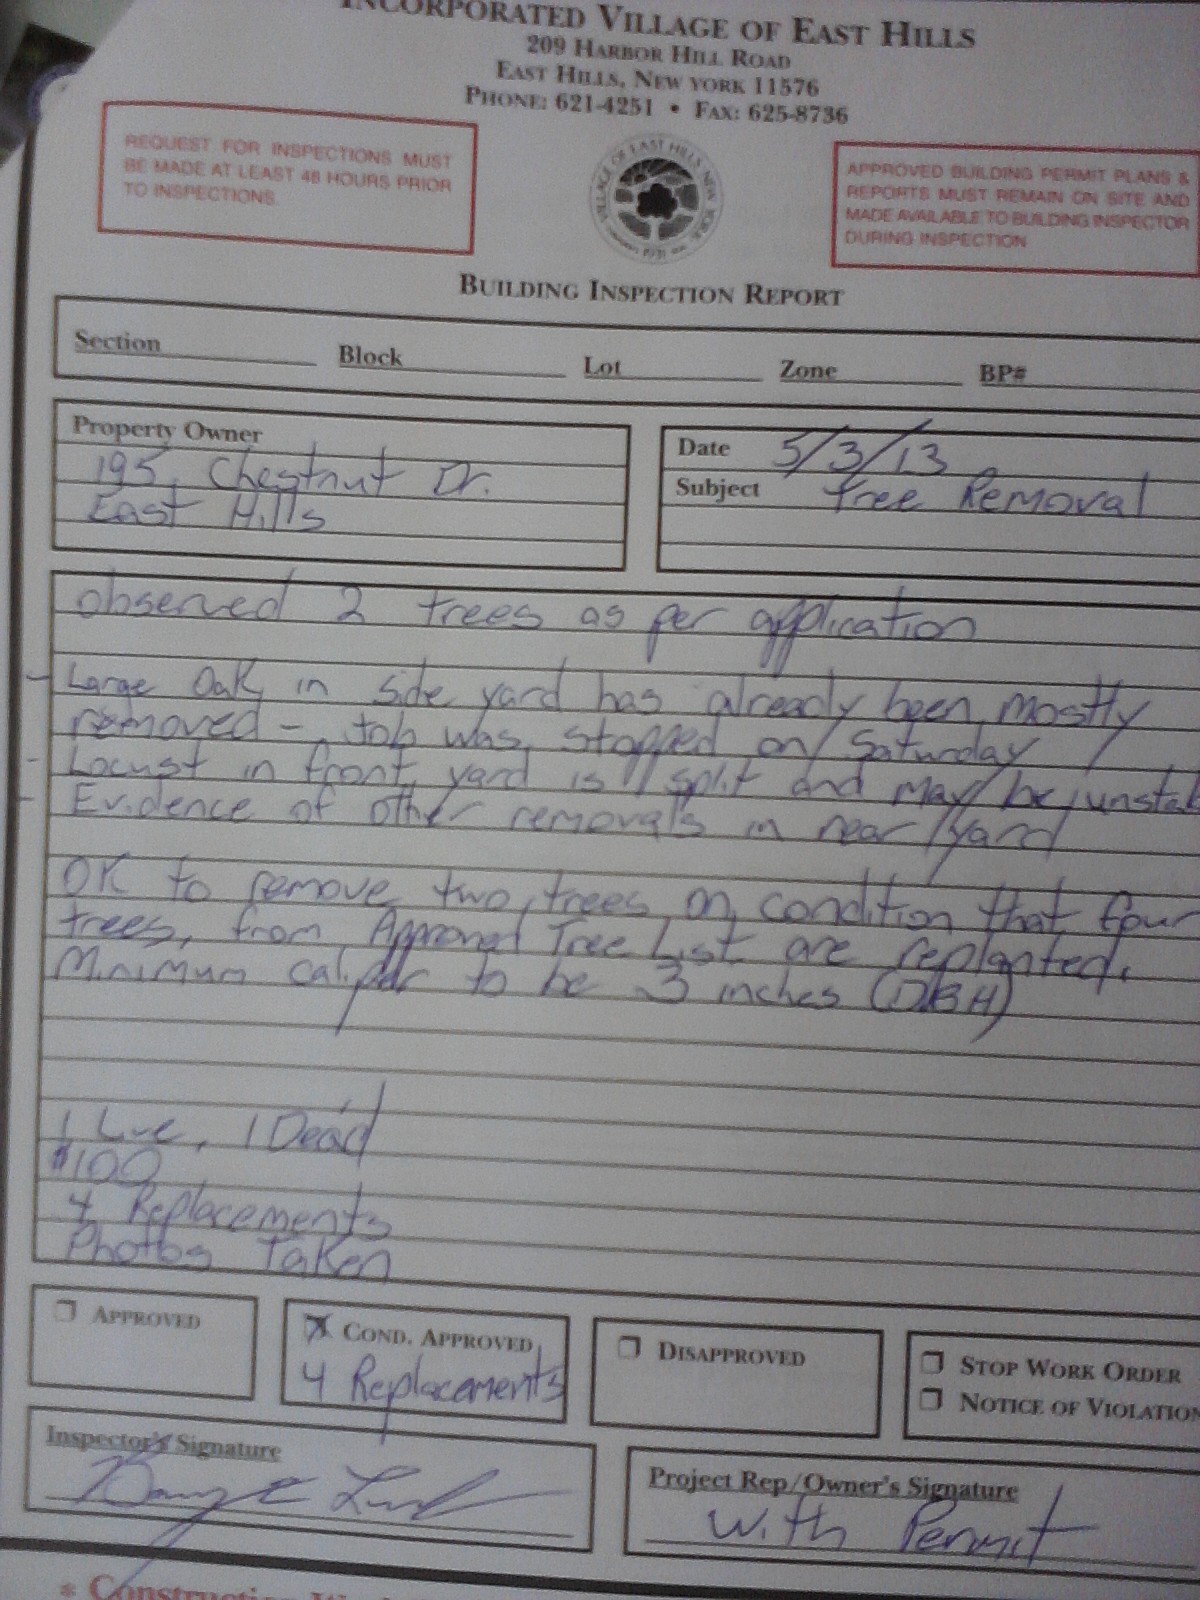 INCORPORATED VILLAGE OF EAST HILLS
209 HARBOR HILL ROAD
EAST HILLS, NEW YORK 11576
PHONE: 621-4251 • FAX: 625-8736
REQUEST FOR INSPECTIONS MUST
BE MADE AT LEAST 48 HOURS PRIOR
TO INSPECTIONS.
VILLAGE OF EAST HILLS NEW YORK
1931
APPROVED BUILDING PERMIT PLANS &
REPORTS MUST REMAIN ON SITE AND
MADE AVAILABLE TO BUILDING INSPECTOR
DURING INSPECTION
BUILDING INSPECTION REPORT
Section Block Lot Zone BP#
Property Owner
195 Chestnut Dr.
East Hills
Date 5/3/13
Subject Tree Removal
observed 2 trees as per application
- Large Oak in side yard has already been mostly
removed - Job was stopped on Saturday
- Locust in front yard is split and may be unstab
- Evidence of other removals in rear yard
OK to remove two trees on condition that four
trees, from Approved Tree List are replanted.
Minimum caliper to be 3 inches (DBH)
1 Live, 1 Dead
$100
4 Replacements
Photos Taken
APPROVED
COND. APPROVED
4 Replacements
DISAPPROVED
STOP WORK ORDER
NOTICE OF VIOLATION
Inspector's Signature
Project Rep/Owner's Signature
With Permit
* Construction